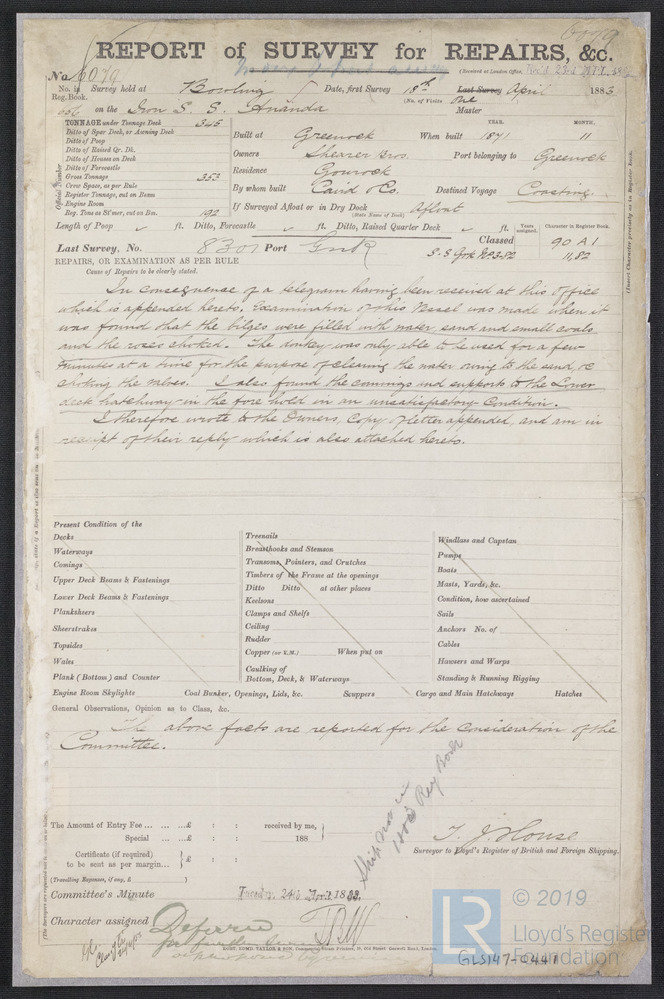 6079
REPORT of SURVEY for REPAIRS, &c.
No. 6079
(Received at London Office, 23rd APL. 188
No. in Reg. Book. Survey held at Bowling Date, first Survey 18th Last Survey April 1883
(No. of Visits one Master
on the Iron S. S. Ananda
TONNAGE under Tonnage Deck 345
Ditto of Spar Deck, or Awning Deck
Ditto of Poop
Ditto of Raised Qr. Dk.
Ditto of Houses on Deck
Ditto of Forecastle
Gross Tonnage 353
Crew Space, as per Rule
Register Tonnage, cut on Beam
Engine Room
Reg. Tons as St'mer, cut on Bm. 192
Official Number
YEAR. MONTH.
Built at Greenock When built 1871 11
Owners Shearer Bros. Port belonging to Greenock
Residence Gourock
By whom built Caird & Co. Destined Voyage Coasting.
If Surveyed Afloat or in Dry Dock Afloat
(State Name of Dock)
Length of Poop ft. Ditto, Forecastle ft. Ditto, Raised Quarter Deck ft.
Years assigned. Character in Register Book.
Last Survey, No. 8301 Port Grnk Classed 90 A 1
11,82
REPAIRS, OR EXAMINATION AS PER RULE
Cause of Repairs to be clearly stated.
In consequence of a telegram having been received at this office
which is appended hereto, Examination of this Vessel was made when it
was found that the bilges were filled with water, sand and small coals
and the roses choked. The donkey was only able to be used for a few
minutes at a time for the purpose of clearing the water owing to the sand, &c
choking the valves. I also found the comings and supports to the Lower
deck hatchway in the fore hold in an unsatisfactory Condition.
I therefore wrote to the Owners, Copy of letter appended, and am in
receipt of their reply which is also attached hereto.
Present Condition of the
Decks
Waterways
Comings
Upper Deck Beams & Fastenings
Lower Deck Beams & Fastenings
Planksheers
Sheerstrakes
Topsides
Wales
Plank (Bottom) and Counter
Engine Room Skylights
Treenails
Breasthooks and Stemson
Transoms, Pointers, and Crutches
Timbers of the Frame at the openings
Ditto Ditto at other places
Keelsons
Clamps and Shelfs
Ceiling
Rudder
Copper (or Y.M.) When put on
Caulking of
Bottom, Deck, & Waterways
Windlass and Capstan
Pumps
Boats
Masts, Yards, &c.
Condition, how ascertained
Sails
Anchors No. of
Cables
Hawsers and Warps
Standing & Running Rigging
Coal Bunker, Openings, Lids, &c. Scuppers Cargo and Main Hatchways Hatches
General Observations, Opinion as to Class, &c.
The above facts are reported for the Consideration of the
Committee.
Ship not in
Reg Book
The Amount of Entry Fee ... ... ...£ : : received by me,
Special ... ...£ : : 188
Certificate (if required)
to be sent as per margin... £ : :
(Travelling Expenses, if any, £ )
T. J. House
Surveyor to Lloyd's Register of British and Foreign Shipping.
Committee's Minute Tuesday, 24th April, 1883.
Character assigned Deferred
© 2019
LR
Lloyd's Register
Foundation
GLS147-0441